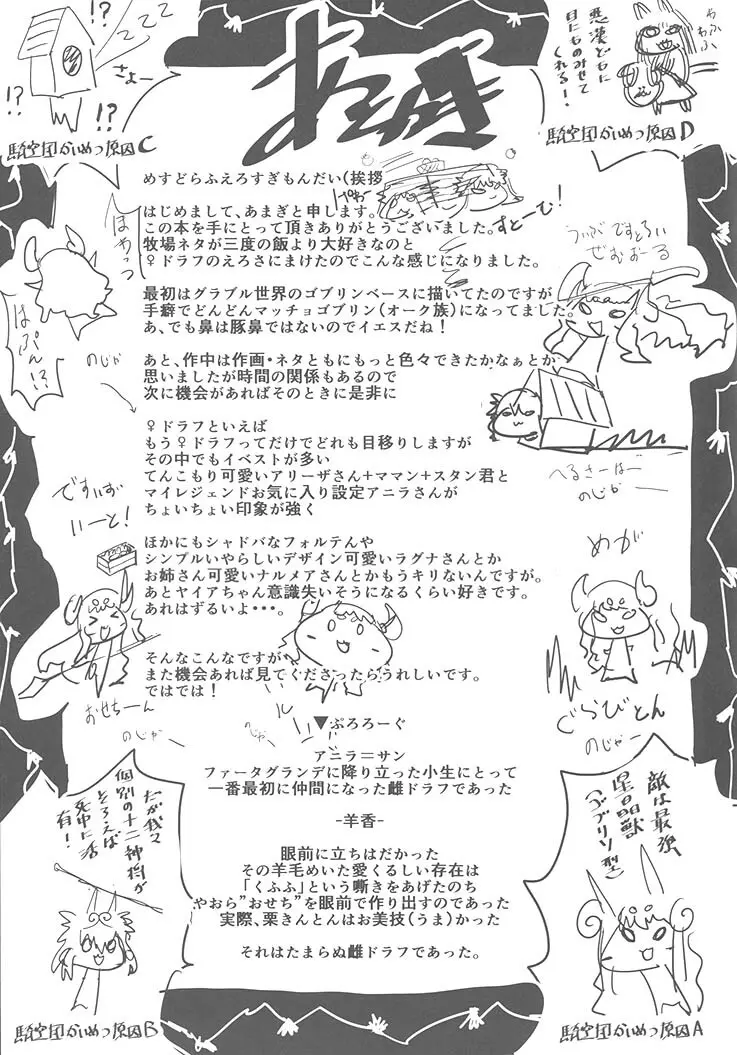 !?
zzz
さよー
!?
!?
騎空団かいめつ原因C
あとがき
やふふ
わふ
悪漢どもに
目にものみせて
くれる!
騎空団かいめつ原因D
めすどらふえろすぎもんだい(挨拶
はじめまして、あまぎと申します。
この本を手にとって頂きありがとうございました。
牧場ネタが三度の飯より大好きなのと
♀ドラフのえろさにまけたのでこんな感じになりました。
すとーむ!
ほゎっつ
はぷん!?
のじゃ
うぃがですとろい
ぜむおーる
最初はグラブル世界のゴブリンベースに描いてたのですが
手癖でどんどんマッチョゴブリン(オーク族)になってました。
あ、でも鼻は豚鼻ではないのでイエスだね!
あと、作中は作画・ネタともにもっと色々できたかなぁとか
思いましたが時間の関係もあるので
次に機会があればそのときに是非に
♀ドラフといえば
もう♀ドラフってだけでどれも目移りしますが
その中でもイベストが多い
てんこもり可愛いアリーザさん+ママン+スタン君と
マイレジェンドお気に入り設定アニラさんが
ちょいちょい印象が強く
へるさーばー
のじゃー
ですいずお
いーと!
ほかにもシャドバなフォルテんや
シンプルいやらしいデザイン可愛いラグナさんとか
お姉さん可愛いナルメアさんとかもうキリないんですが。
あとヤイアちゃん意識失いそうになるくらい好きです。
あれはずるいよ・・・。
めが
ぐらびとん
のじゃー
おせちーん
のじゃ
そんなこんなですが
また機会あれば見てくださったらうれしいです。
ではでは!
▼ぷろろーぐ
のじゃー
アニラ=サン
ファータグランデに降り立った小生にとって
一番最初に仲間になった雌ドラフであった
-羊香-
眼前に立ちはだかった
その羊毛めいた愛くるしい存在は
「くふふ」という嘶きをあげたのち
やおら"おせち"を眼前で作り出すのであった
実際、栗きんとんはお美技(うま)かった
それはたまらぬ雌ドラフであった。
だが我々
個別の十二神将が
そろえば
死中に活
有!
騎空団かいめつ原因B
敵は最強
星晶獣
(ゴブリン型)
騎空団かいめつ原因A